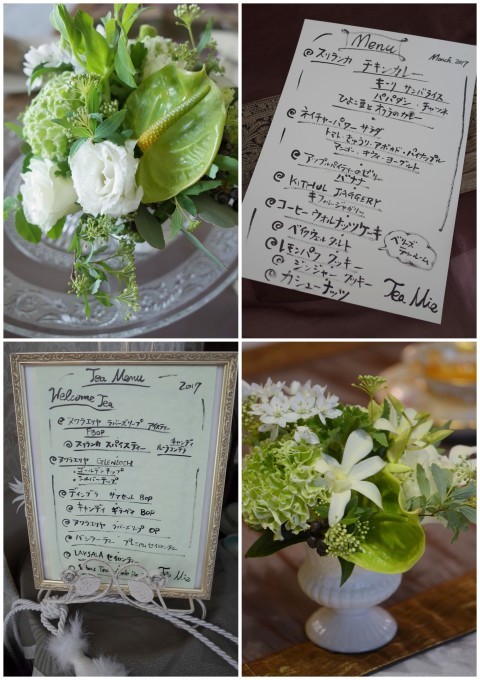 Menu
March 2017
@スリランカ チキンカレー
キーリ サンバライス
パパダン・チャツネ
ひよこ豆とオクラのカレー
@ネイチャーパワー サラダ
トマト・きゅうり・アボカド・パイナップル
マンゴー・オクラ・ヨーグルト
バナナ
@KITHUL JAGGERY
@コーヒー ウォルナッツケーキ
@ベイクウェルタルト
@レモンパフ クッキー
@ジンジャー クッキー
@カシューナッツ
Tea Mie
Tea Menu
2017
Welcome Tea
@ヌワラエリヤ ラバーズリープ アイスティー
FBOP
@スリランカ スパイスティー
キャンディ
@ヌワラエリヤ GLENLOCH
ゴールデンチップ
シルバーチップ
@ディンブラ サマセット BOP
@キャンディ ギラゲマ BOP
@ヌワラエリヤ ラバーズリープ OP
@LAKSALA セイロンティー
Tea Mie